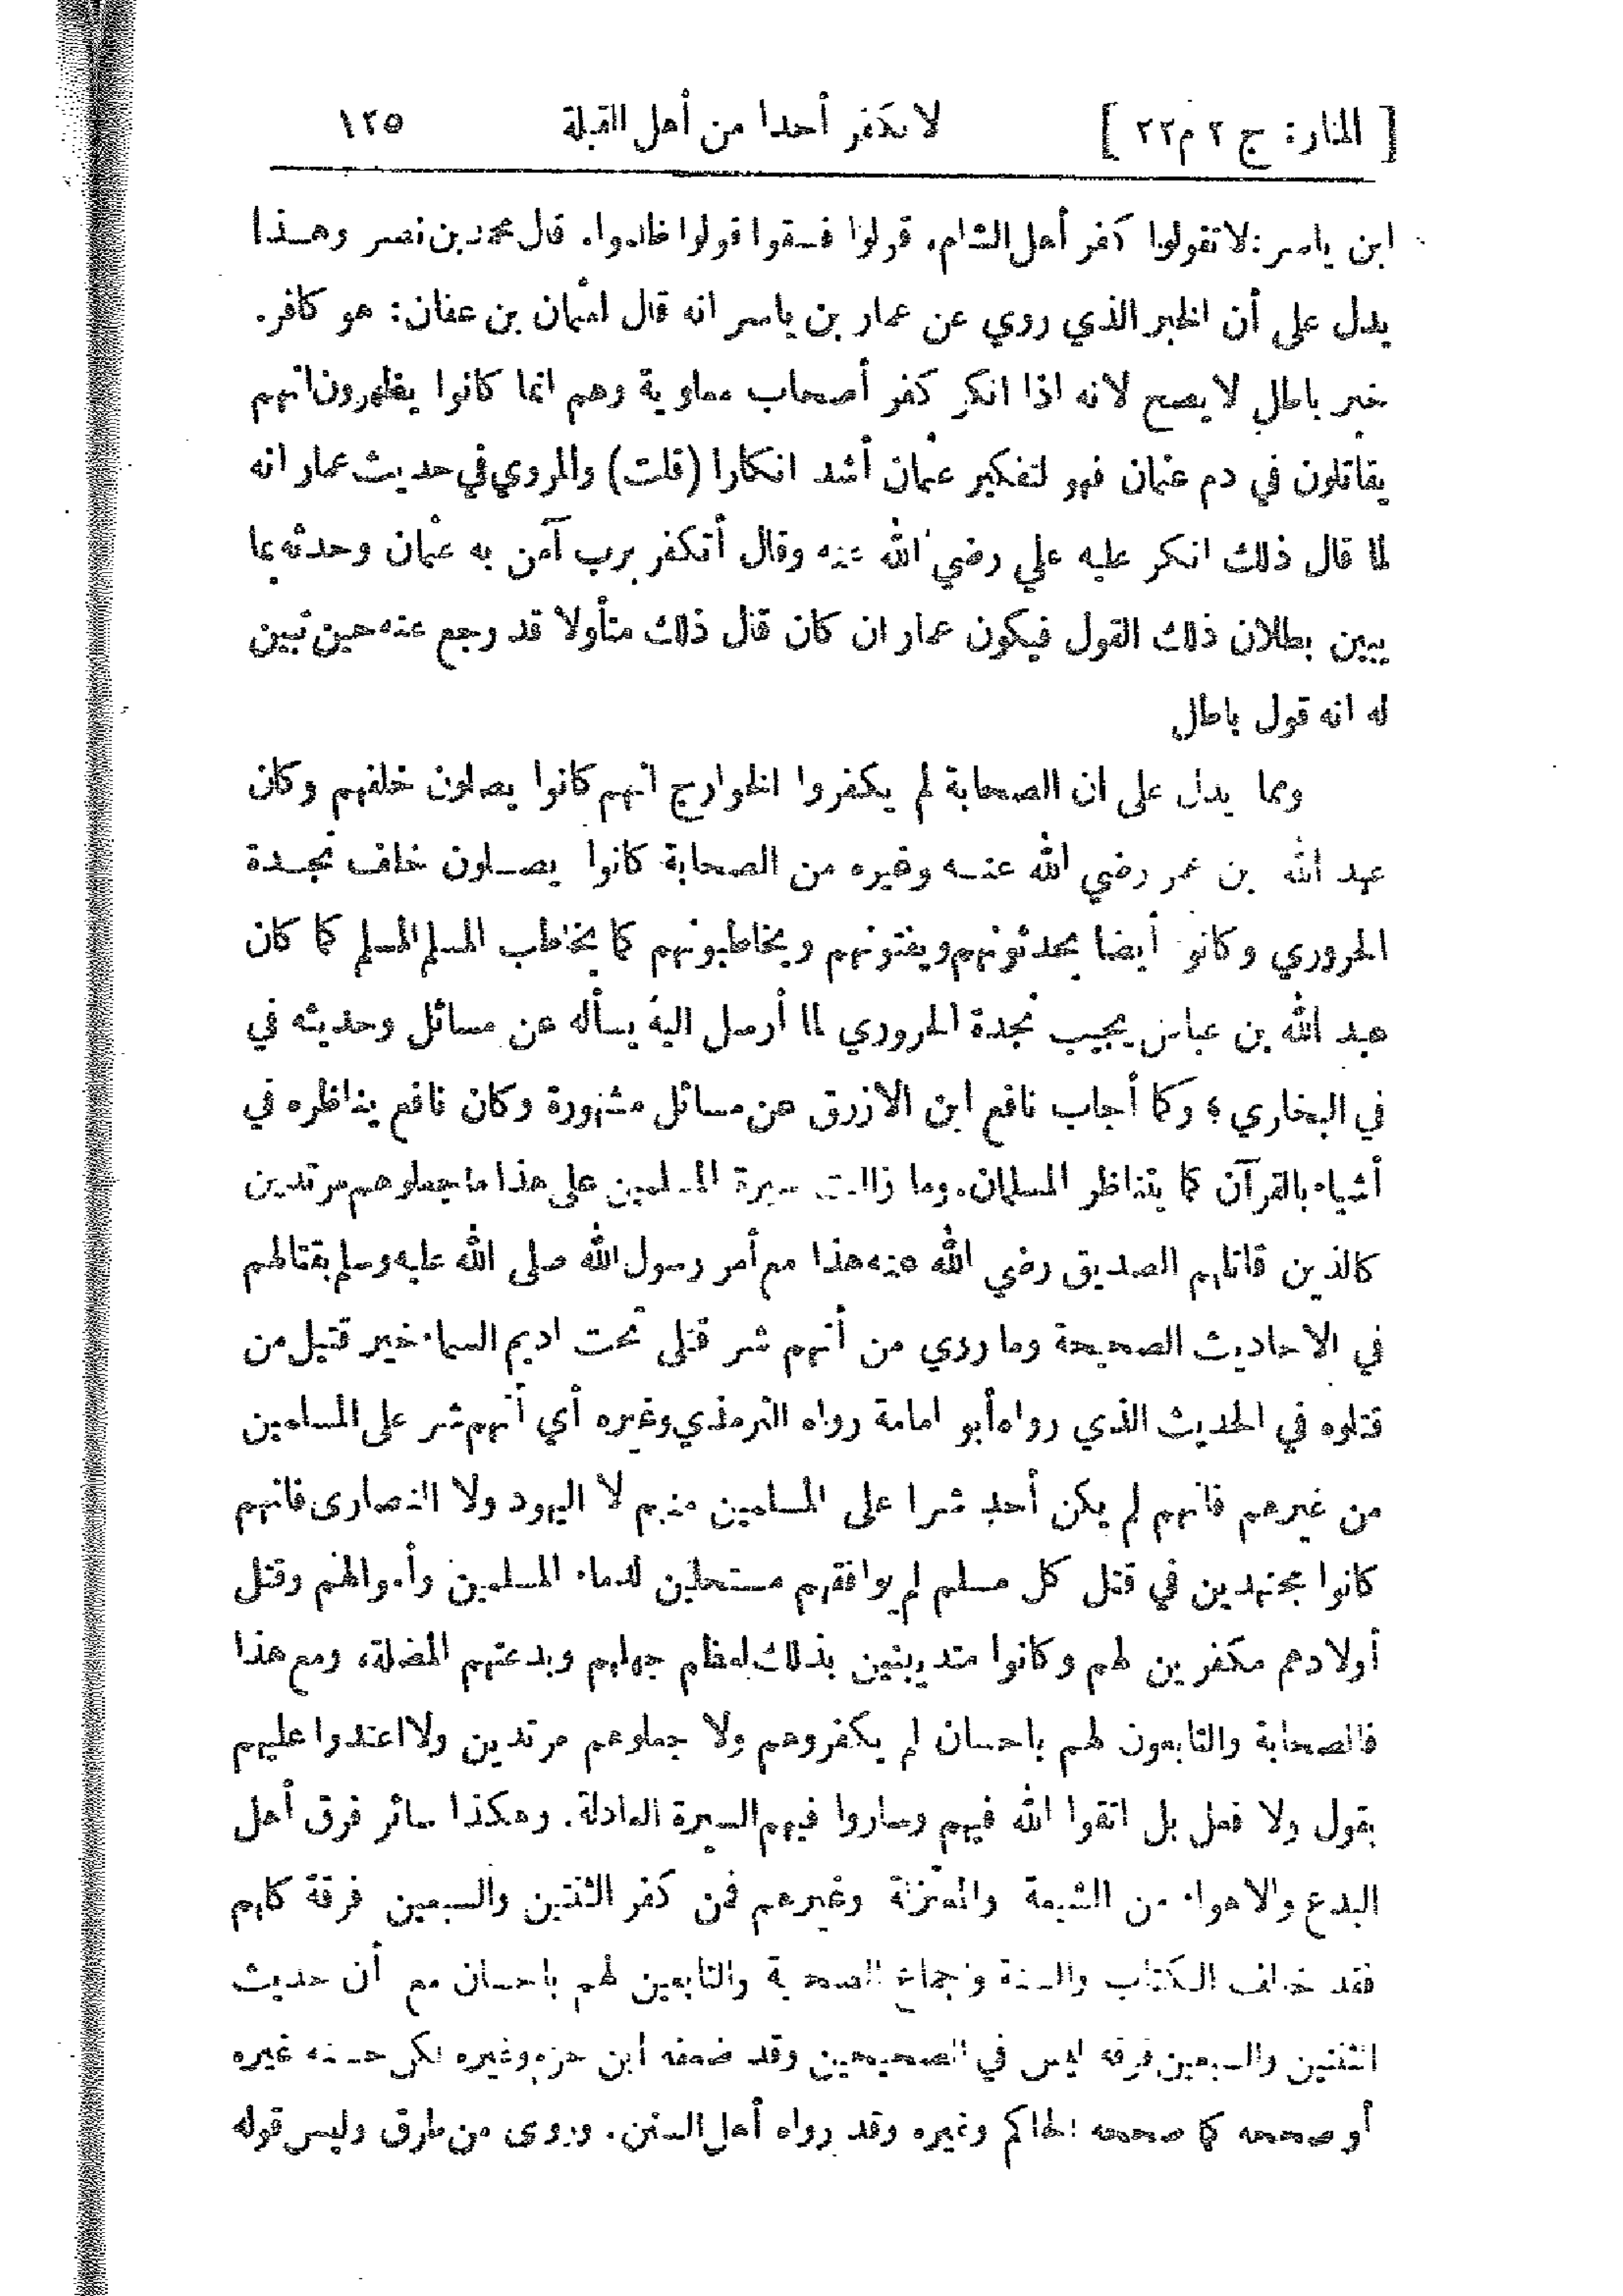 [ المنار: ج ٢ م ٢٢ ] لا نكفر أحدا من أهل القبلة ١٢٥
ابن ياسر: لا تقولوا كفر أهل الشام، قولوا فسقوا قولوا ظلموا. قال محمد بن نصر وهذا
يدل على أن الخبر الذي روي عن عمار بن ياسر انه قال لعثمان بن عفان: هو كافر.
خبر باطل لا يصح لانه اذا انكر كفر أصحاب معاوية وهم انما كانوا يظهرون انهم
يقاتلون في دم عثمان فهو لتفكير عثمان أشد انكارا (قلت) والمروي في حديث عمار انه
لما قال ذلك انكر عليه علي رضي الله عنه وقال أتكفر برب آمن به عثمان وحدثه بما
يبين بطلان ذلك القول فيكون عمار ان كان قال ذلك متأولا قد رجع عنه حين تبين
له انه قول باطل
ومما يدل على ان الصحابة لم يكفروا الخوارج انهم كانوا يصلون خلفهم وكان
عبد الله بن عمر رضي الله عنه وغيره من الصحابة كانوا يصلون خلف نجدة
الحروري وكانوا أيضا يحدثونهم ويفتونهم ويخاطبونهم كما يخاطب المسلم المسلم كما كان
عبد الله بن عباس يجيب نجدة الحروري لما أرسل اليه يسأله عن مسائل وحديثه في
في البخاري ، وكما أجاب نافع ابن الازرق عن مسائل مشهورة وكان نافع يناظره في
أشياء بالقرآن كما يتناظر المسلمان. وما زالت سيرة المسلمين على هذا ما جعلوهم مرتدين
كالذين قاتلهم الصديق رضي الله عنه هذا مع أمر رسول الله صلى الله عليه وسلم بقتالهم
في الاحاديث الصحيحة وما روي من أنهم شر قتلى تحت اديم السماء خير قتيل من
قتلوه في الحديث الذي رواه أبو امامة رواه الترمذي وغيره أي أنهم شر على المسلمين
من غيرهم فانهم لم يكن أحد شرا على المسلمين منهم لا اليهود ولا النصارى فانهم
كانوا مجتهدين في قتل كل مسلم لم يوافقهم مستحلين لدماء المسلمين وأموالهم وقتل
أولادهم مكفرين لهم وكانوا متدينين بذلك لعظم جهلهم وبدعتهم المضلة، ومع هذا
فالصحابة والتابعون لهم باحسان لم يكفروهم ولا جعلوهم مرتدين ولا اعتدوا عليهم
بقول ولا فعل بل اتقوا الله فيهم وساروا فيهم السيرة العادلة. وهكذا سائر فرق أهل
البدع والاهواء من الشيعة والمعتزلة وغيرهم فمن كفر الثنتين والسبعين فرقة كلهم
فقد خالف الكتاب والسنة وجماع الصحابة والتابعين لهم باحسان مع أن حديث
الثنتين والسبعين فرقة ليس في الصحيحين وقد ضعفه ابن حزم وغيره لكن حسنه غيره
أو صححه كما صححه الحاكم وغيره وقد رواه أهل السنن. وروى من طرق وليس قوله